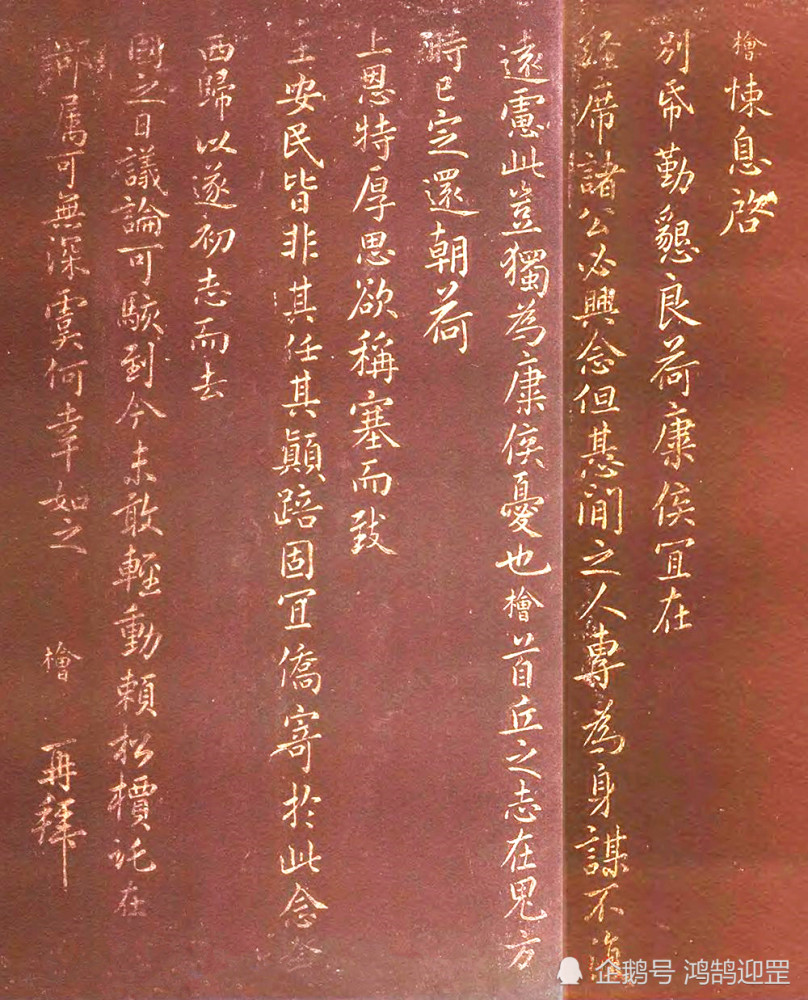 檜悚息啓
別帋勤懇良荷康侯冝在
經席諸公必興念但惎間之人專為身謀不復
遠慮此豈獨為康侯憂也檜首丘之志在鬼方
時已定還朝荷
上恩特厚思欲稱塞而致
王安民皆非其任其顛踣固冝僑寄於此念
西歸以遂初志而去
國之日議論可駭到今未敢輕動賴松檟託在
部属可無深虞何幸如之 檜 再拜
企鹅号 鸿鹄迎罡